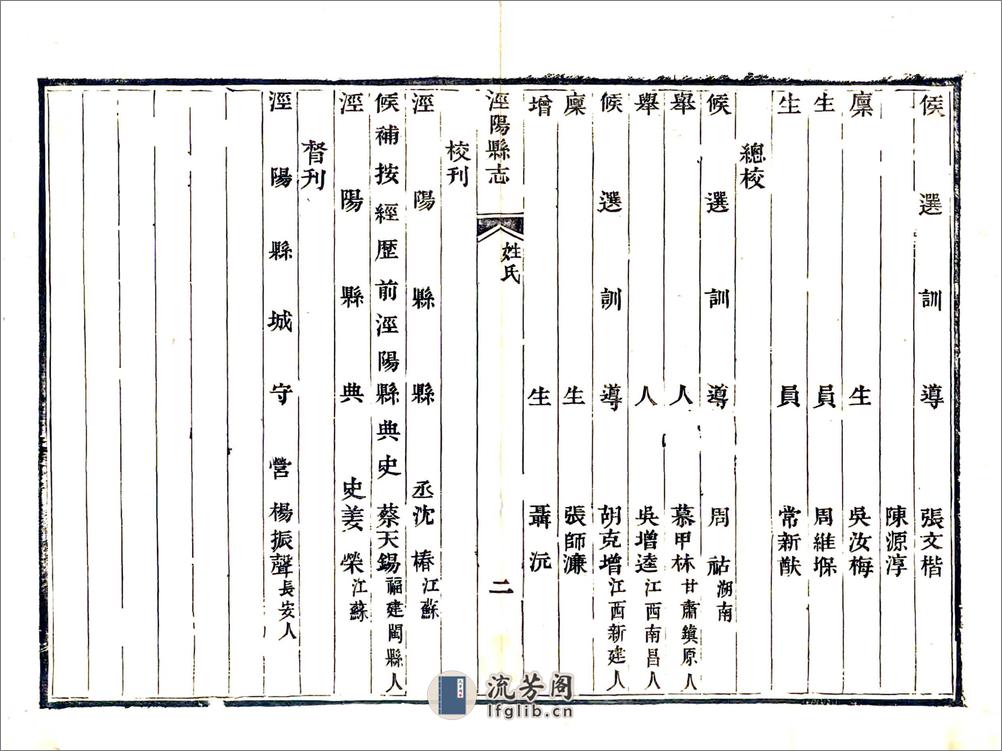 候選訓導 張文楷
陳源淳
廩生 吳汝梅
生員 周維堢
生員 常新猷
總校
候選訓導 周祜湖南
舉人 慕甲林甘肅鎮原人
舉人 吳增逵江西南昌人
候選訓導 胡克增江西新建人
廩生 張師濂
增生 聶沅
涇陽縣志 姓氏 二
校刊
涇陽縣縣丞沈椿江蘇
候補按經歷前涇陽縣典史蔡天錫福建閩縣人
涇陽縣典史姜榮江蘇
督刊
涇陽縣城守營楊振聲長安人
流芳阁
lfglib.cn